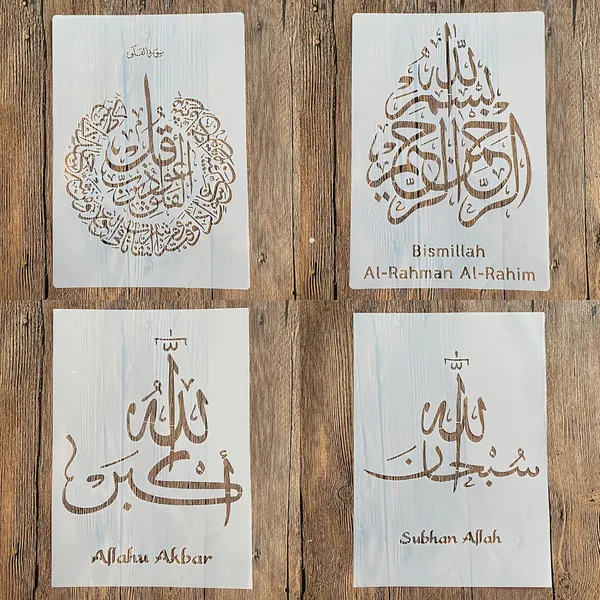 سورة الفلق
قل أعوذ برب الفلق
بسم الله الرحمن الرحيم
Bismillah
Al-Rahman Al-Rahim
الله أكبر
Allahu Akbar
سُبْحَانَ الله
Subhan Allah